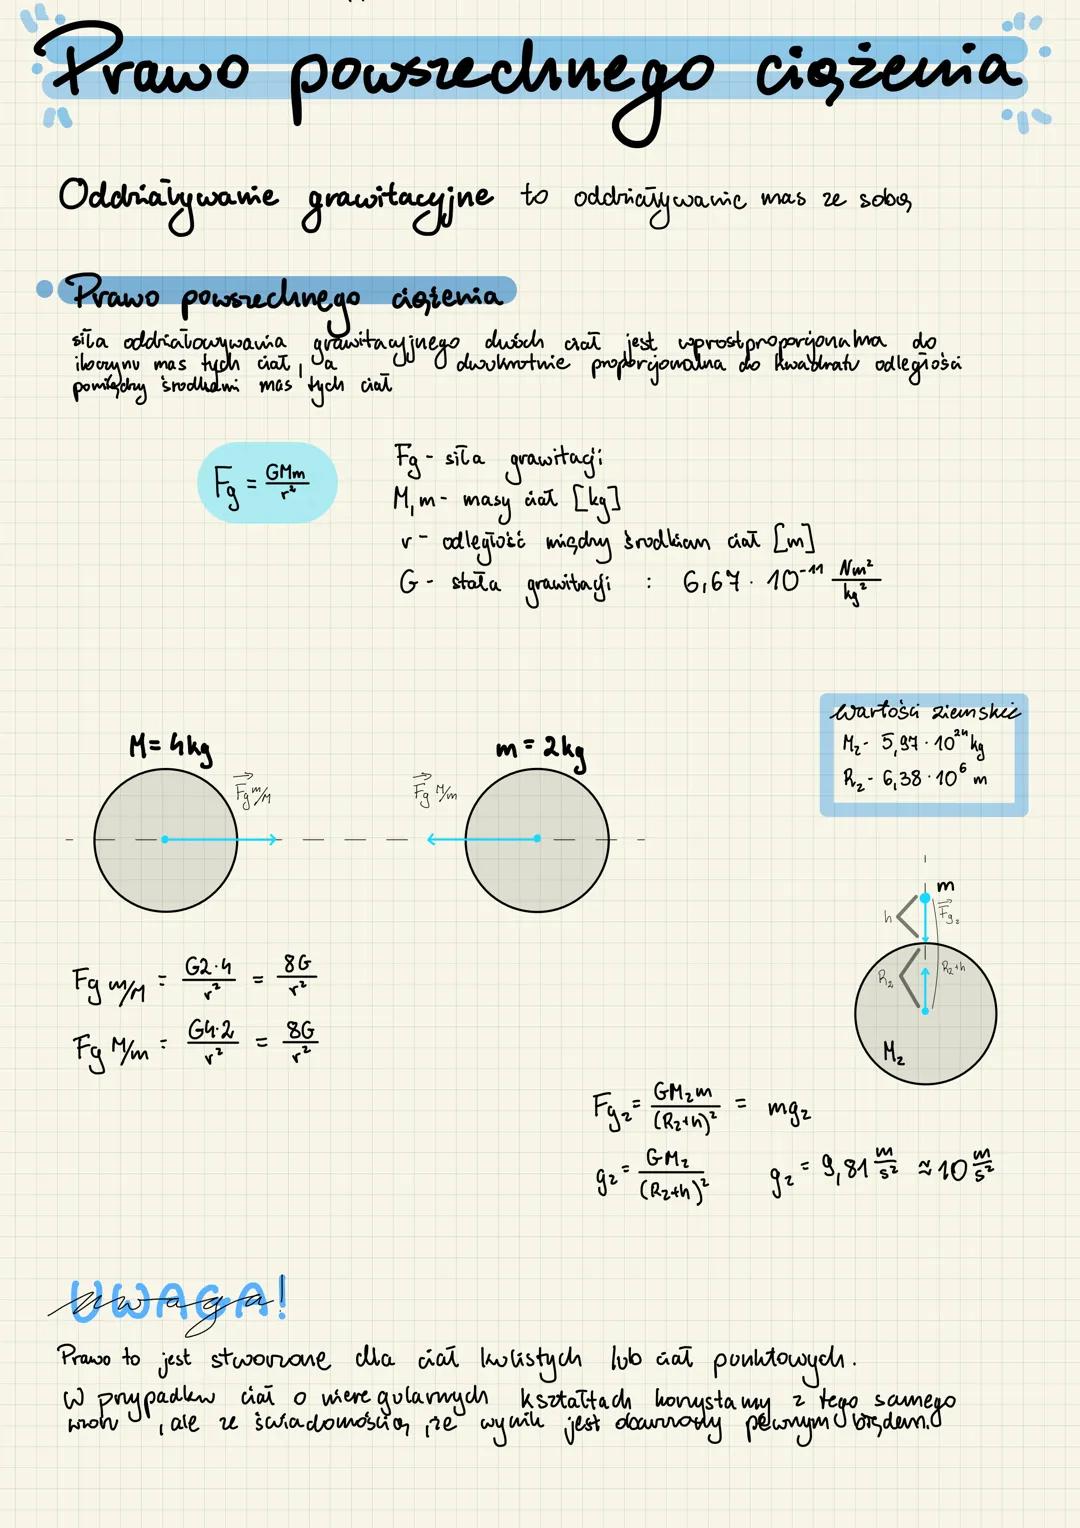 Prawo powszechnego ciążenia
Oddziaływanie grawitacyjne to oddziaływanie mas ze sobą
Prawo powszechnego ciążenia
siła oddziałowywania grawitacyjnego dwóch ciał jest wprostproporcjonalna do
iloczynu mas tych ciał, a dwukrotnie proporcjonalna do kwadratu odległości
pomiędzy środkami mas tych ciał
Fg = GMm/r²
Fg - siła grawitacji
M, m - masy ciał [kg]
r - odległość między środkiam ciał [m]
G - stała grawitacji : 6,67 · 10⁻¹¹ Nm²/kg²
Wartości ziemskie
Mz - 5,97 · 10²⁴ kg
Rz - 6,38 · 10⁶ m
M = 4kg
m = 2kg
Fg m/M
Fg M/m
m
h
Fgz
Rz
Rz+h
Mz
Fg m/M = G2·4/r² = 8G/r²
Fg M/m = G4·2/r² = 8G/r²
Fgz = GMzm/(Rz+h)² = mgz
gz = GMz/(Rz+h)² gz = 9,81 m/s² ≈ 10 m/s²
UWAGA!
uwaga
Prawo to jest stworzone dla ciał kulistych lub ciał punktowych.
W przypadku ciał o nieregularnych kształtach korzystamy z tego samego
wzoru, ale ze świadomością, że wynik jest obarczony pewnym błędem.